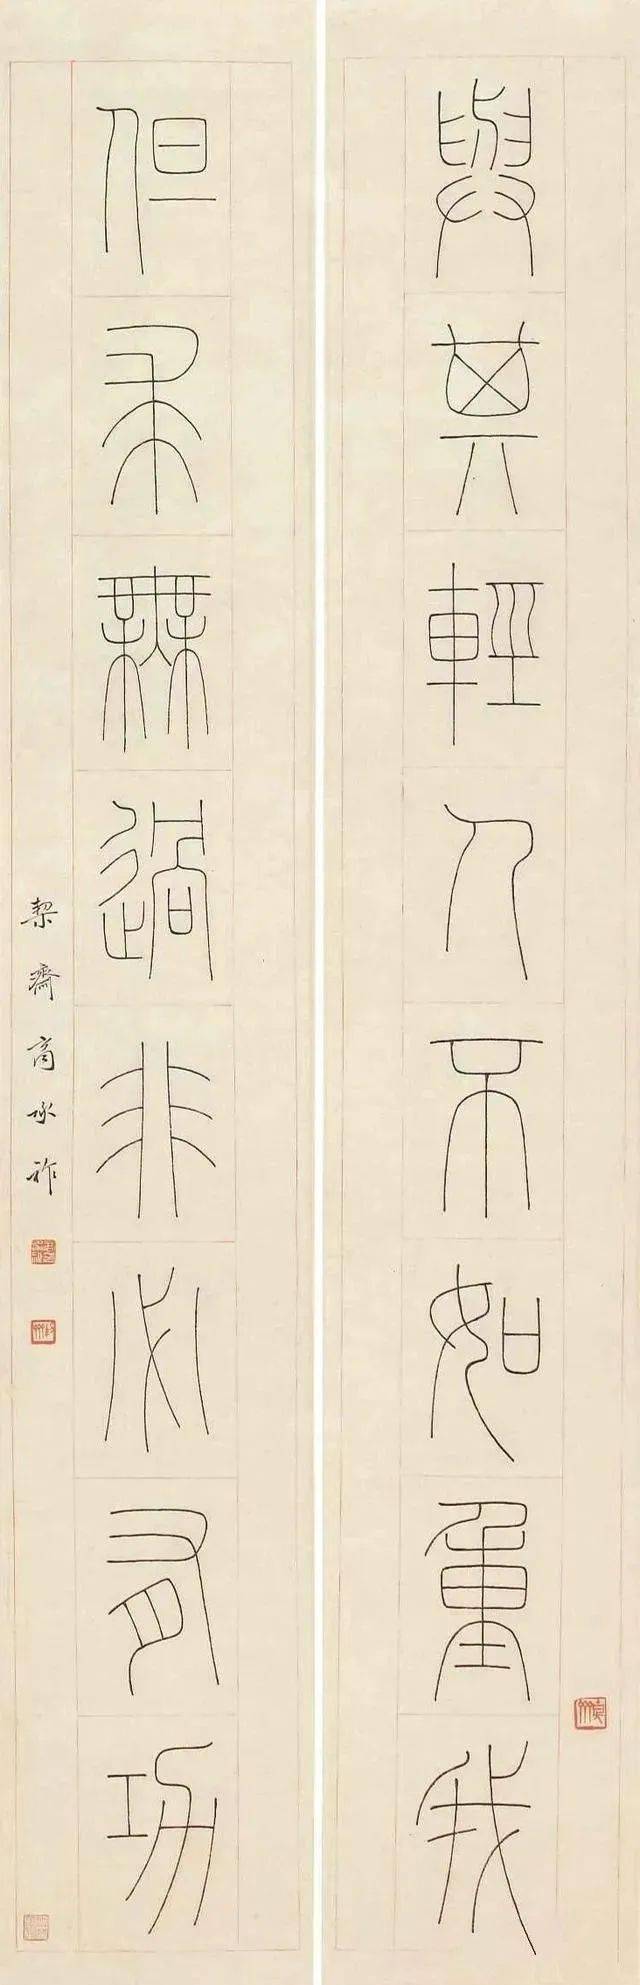 與其輕人不如重我
但求無過非必有功
栔齋商承祚